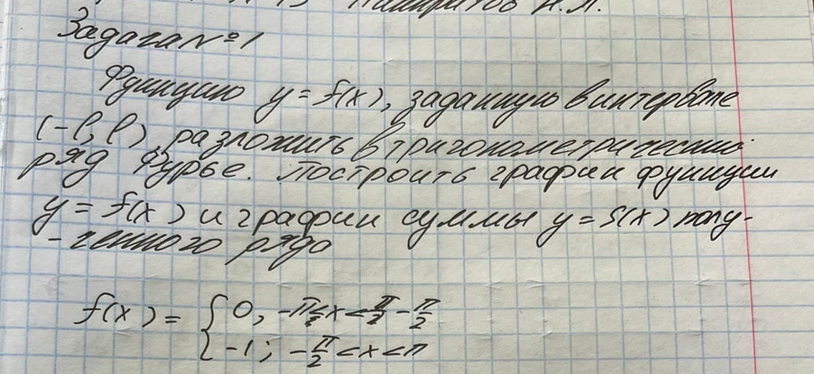 Задача №1
Функцию y = f(x), заданную в интервале
(-l, l), разложить в тригонометрический
ряд Фурье. Построить график функции
y = f(x) и график суммы y = S(x) полу-
-ченного ряда
f(x) = { 0, -π < x < -π/2
-1; -π/2 < x < π